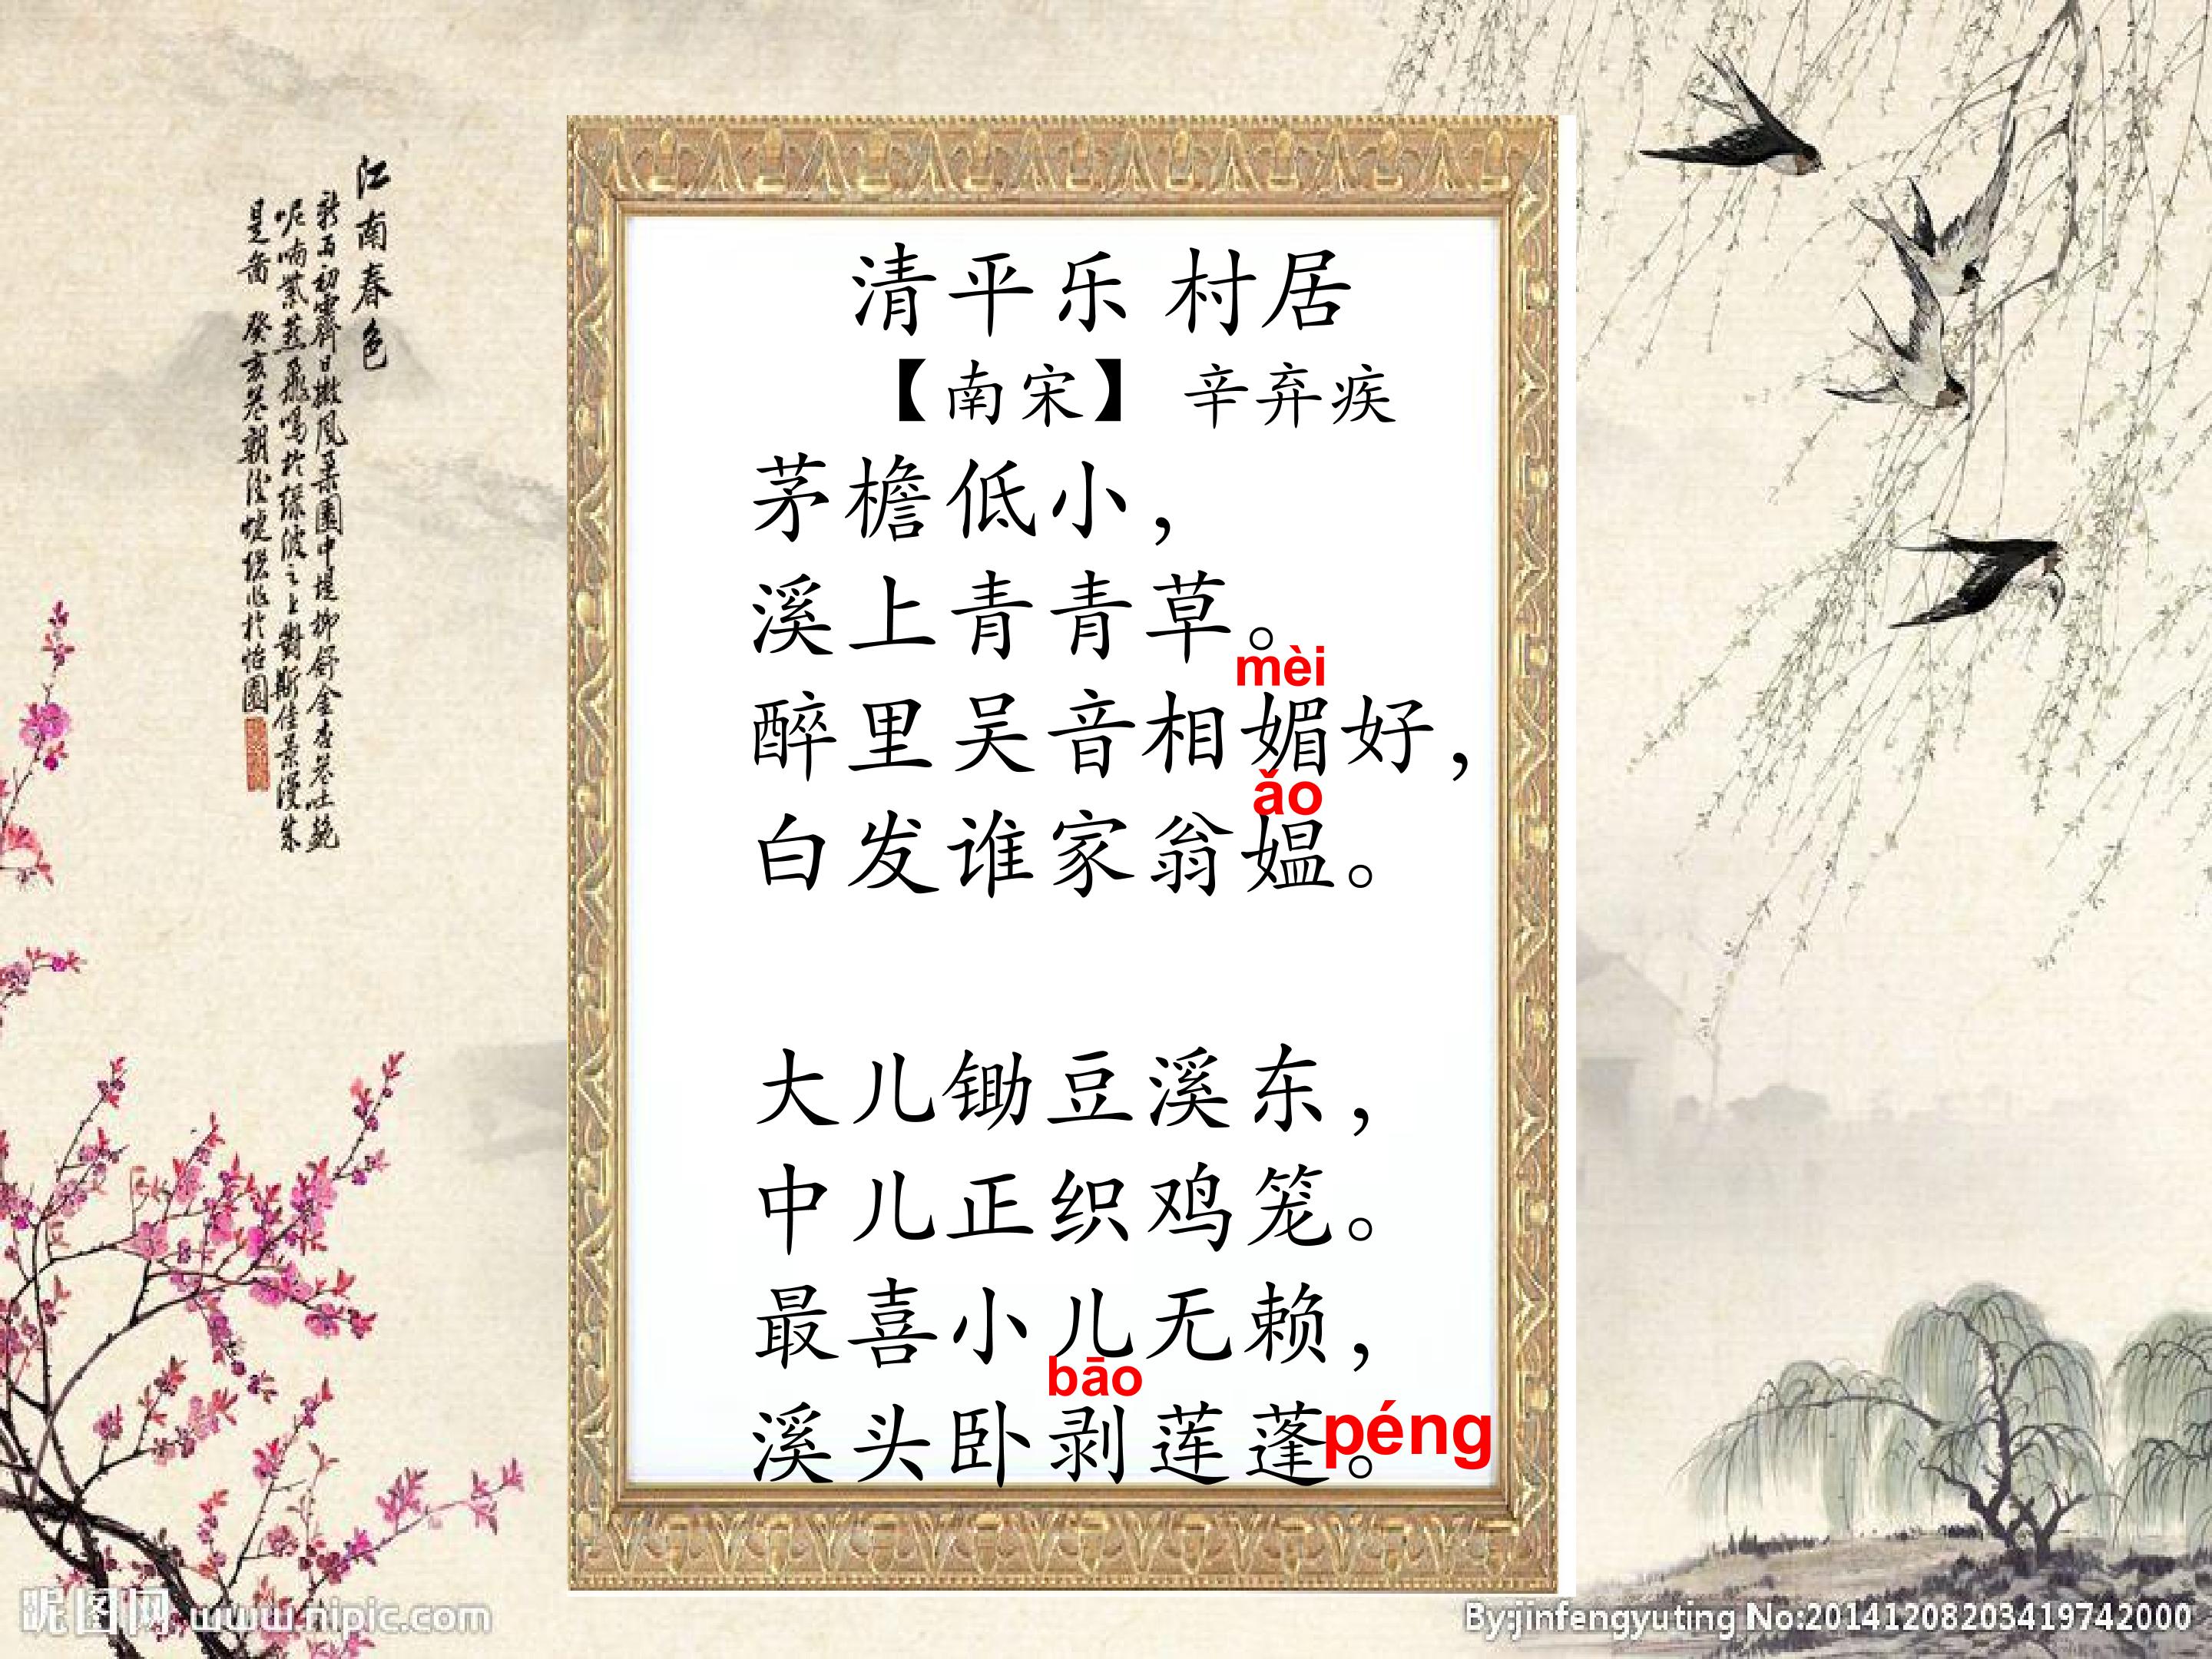 清平乐 村居
【南宋】 辛弃疾
茅檐低小，
溪上青青草。
mèi
醉里吴音相媚好，
ǎo
白发谁家翁媪。
大儿锄豆溪东，
中儿正织鸡笼。
最喜小儿无赖，
bāo
溪头卧剥莲蓬。péng
江南春色
昵图网 www.nipic.com
By:jinfengyuting No:20141208203419742000